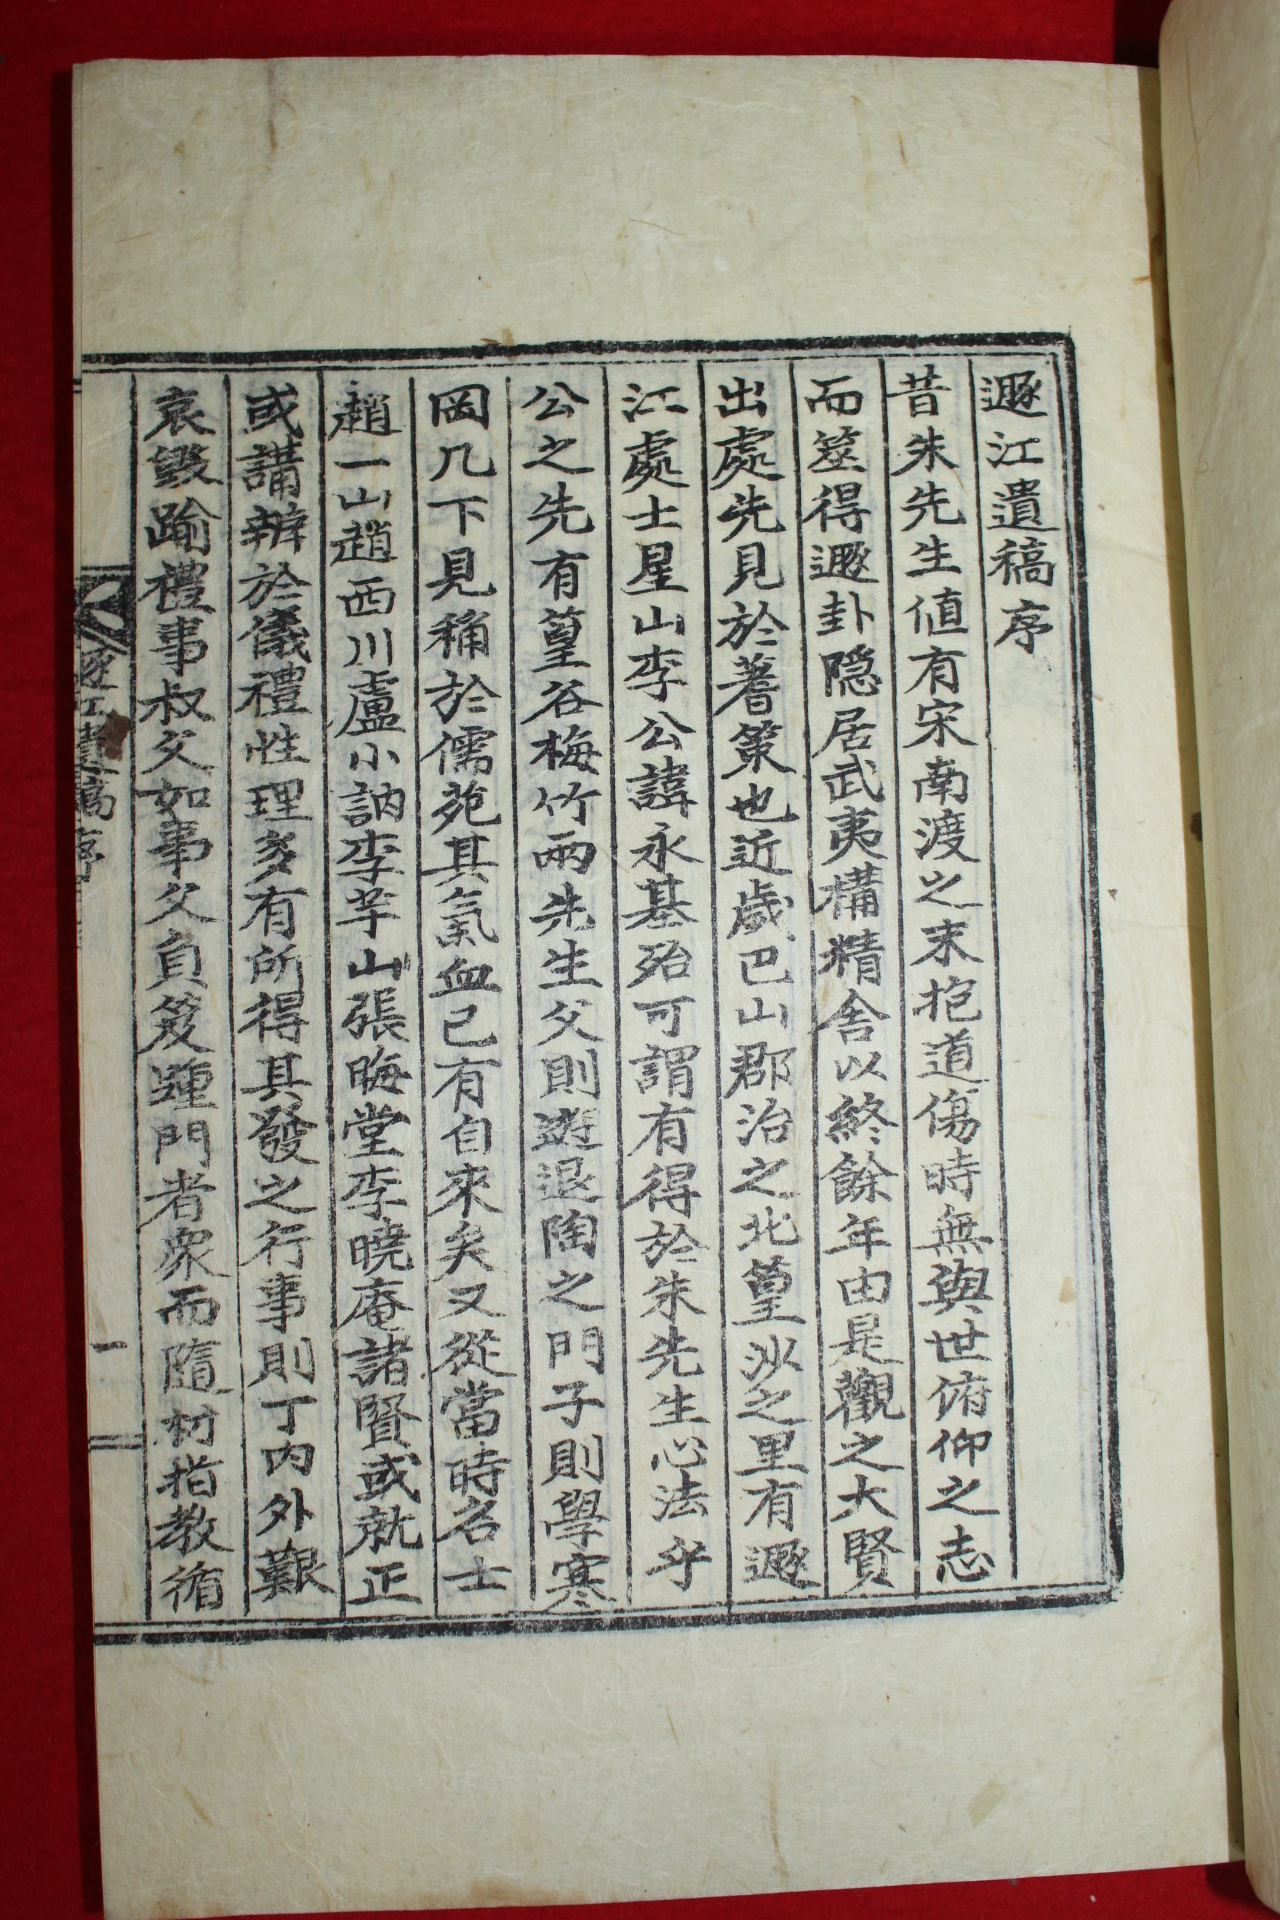 遯江遺稿序
昔朱先生値有宋南渡之末抱道傷時無與世俯仰之志
而筮得遯卦隱居武夷構精舍以終餘年由是觀之大賢
出處先見於蓍策也近歲巴山郡治之北篁沙之里有遯
江處士星山李公諱永基殆可謂有得於朱先生心法乎
公之先有篁谷梅竹兩先生父則遊退陶之門子則學寒
岡几下見稱於儒苑其氣血已有自來矣又從當時名士
趙一山趙西川盧小訥李芋山張晦堂李曉庵諸賢或就正
或講辨於儀禮性理多有所得其發之行事則丁內外艱
哀毀踰禮事叔父如事父負笈踵門者衆而隨材指敎循
遯江遺稿序
一